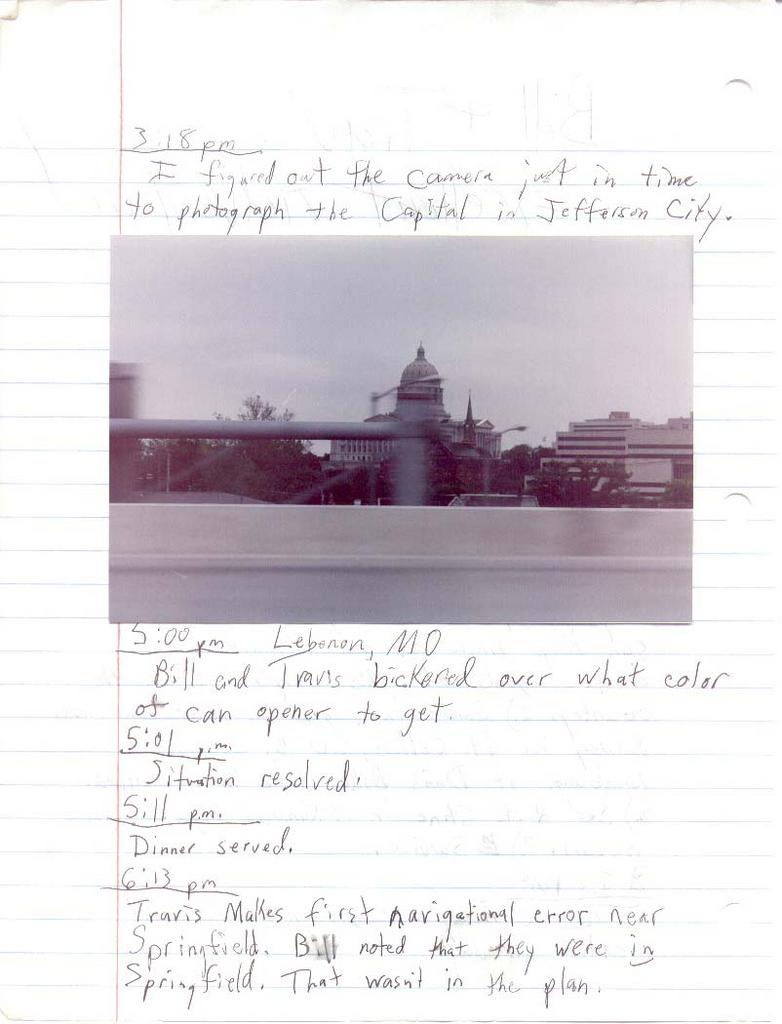 3:18 pm
I figured out the camera just in time
to photograph the Capital in Jefferson City.
5:00 pm Lebenon, MO
Bill and Travis bickered over what color
of can opener to get.
5:01 p.m.
Situation resolved.
5:11 p.m.
Dinner served.
6:13 pm
Travis Makes first navigational error near
Springfield. Bill noted that they were in
Springfield. That wasn't in the plan.